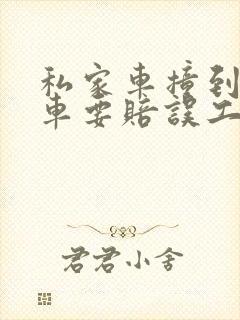 私家車撞到
車要賠誤工
君君小舍